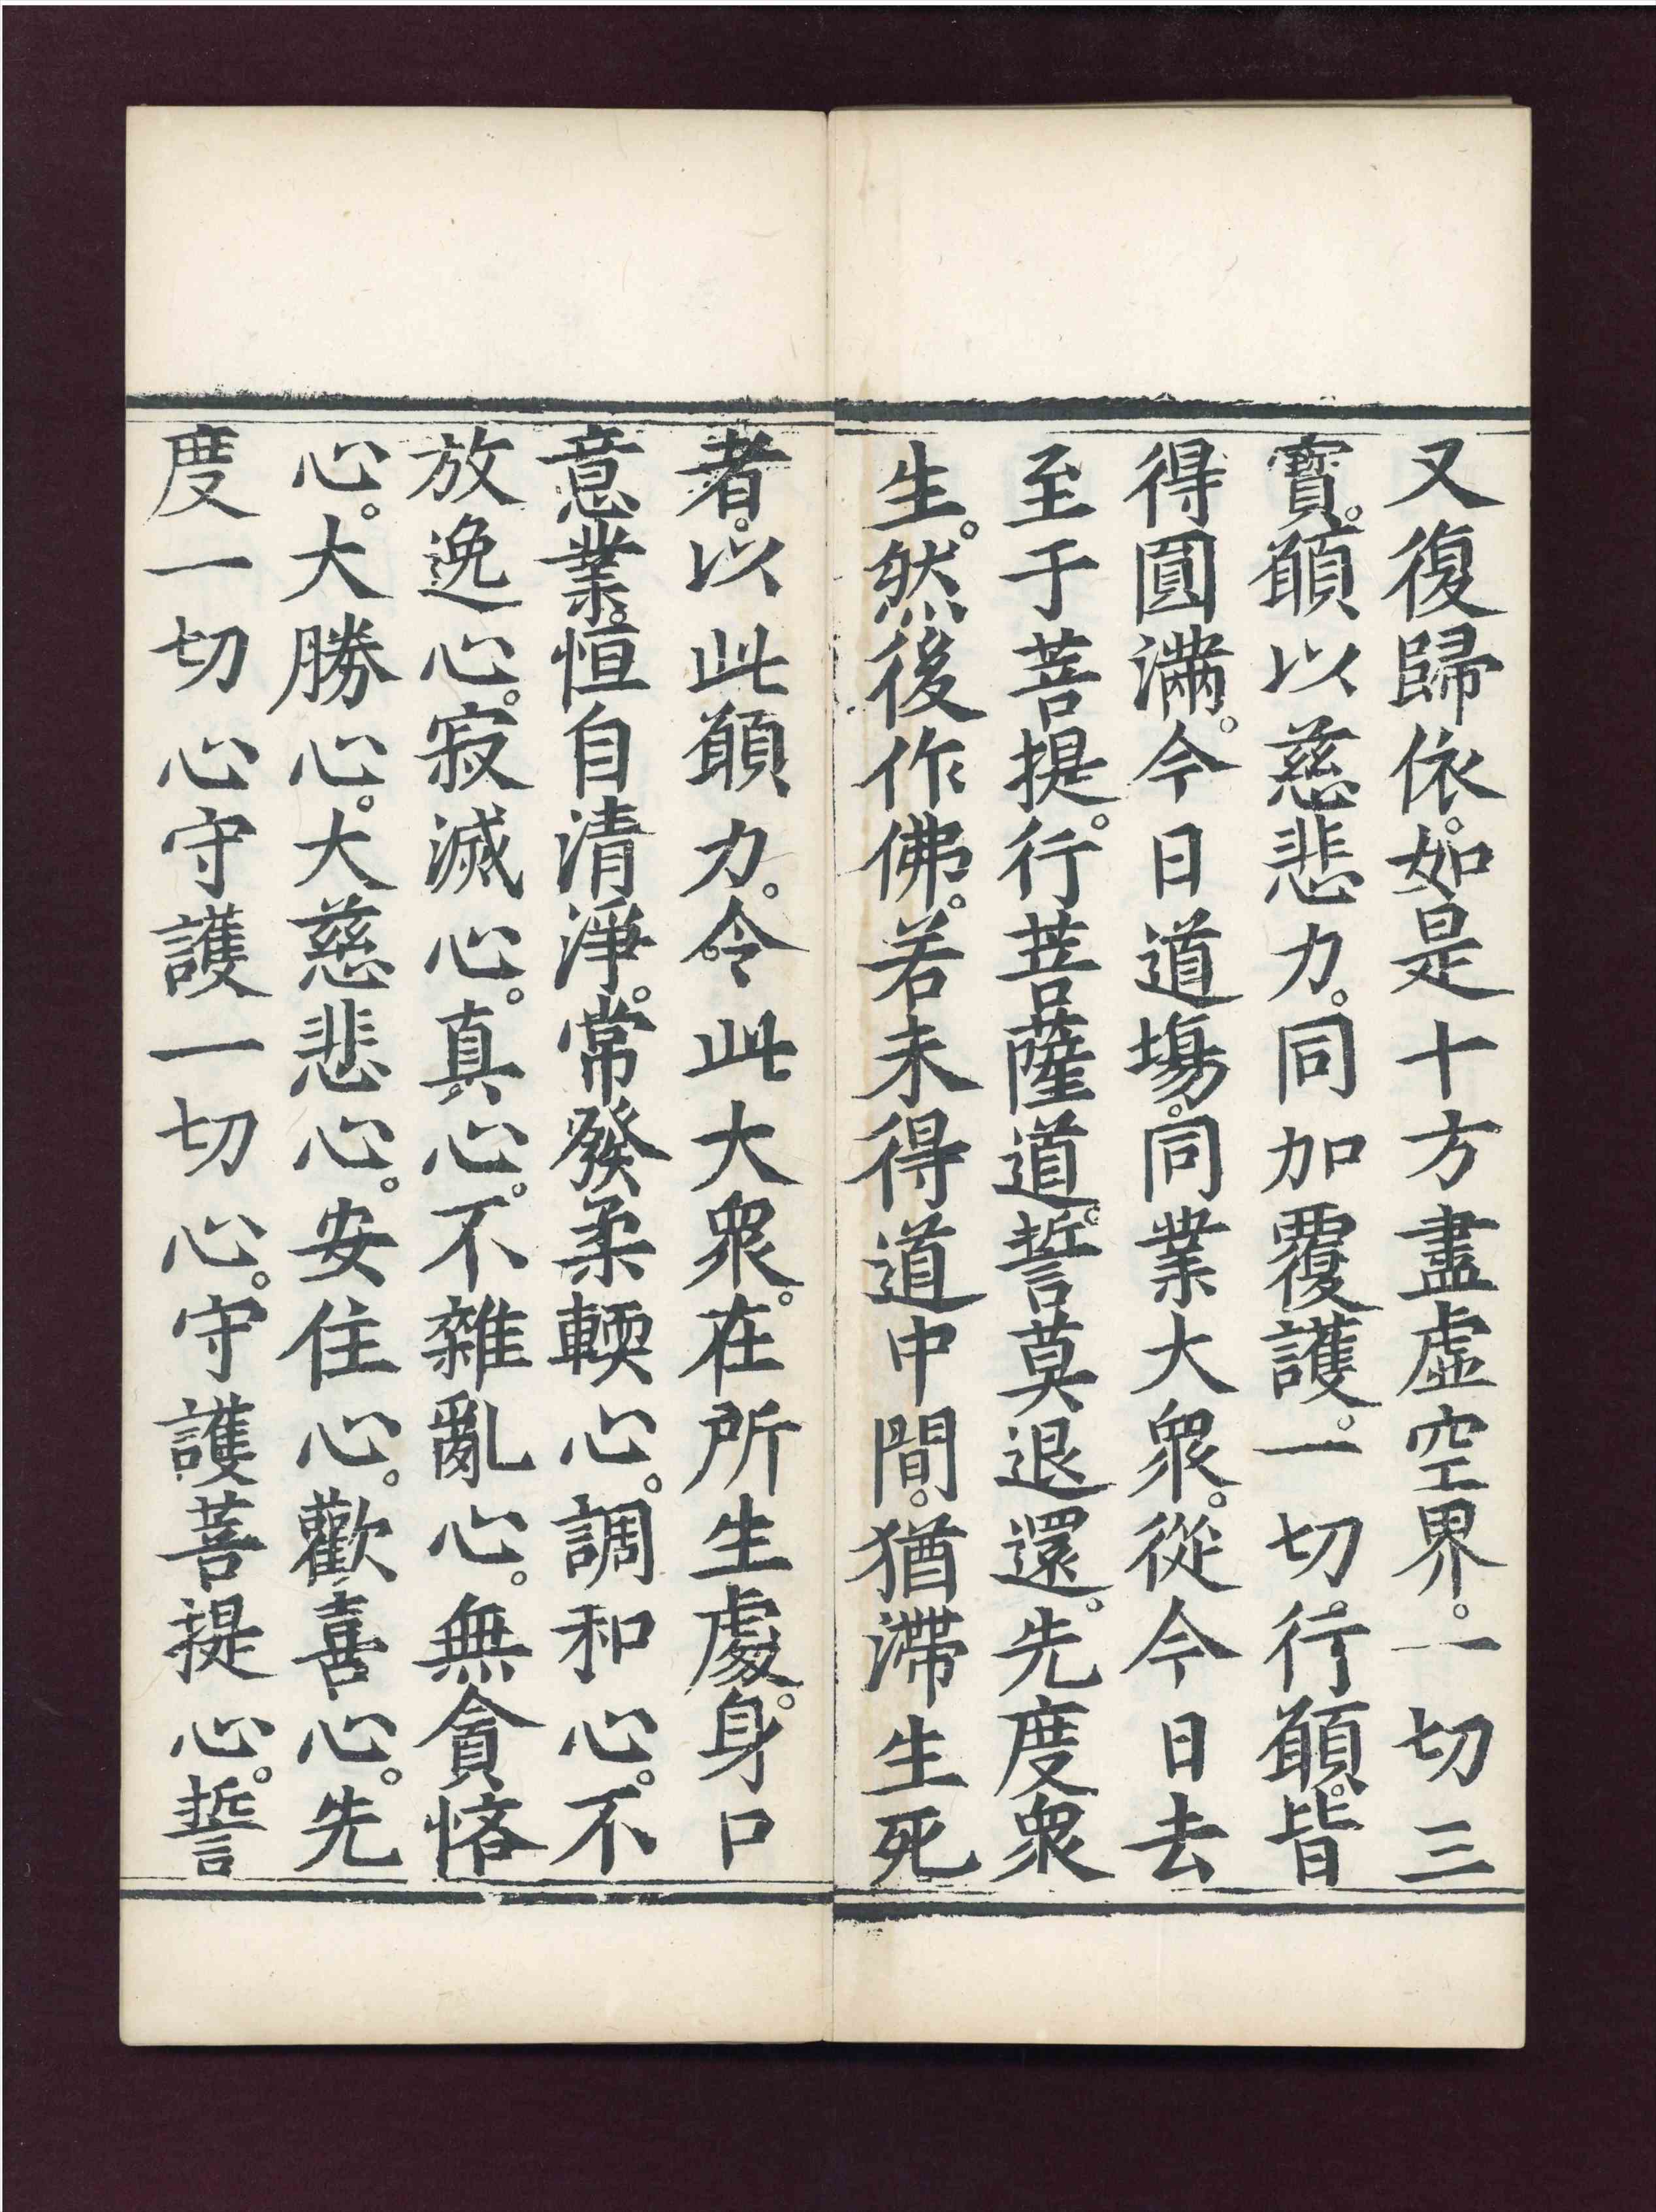 又復歸依。如是十方盡虛空界。一切三
寶。願以慈悲力。同加覆護。一切行願。皆
得圓滿。今日道場。同業大衆。從今日去
至于菩提。行菩薩道。誓莫退還。先度衆
生。然後作佛。若未得道中間。猶滯生死
者。以此願力。令此大衆。在所生處。身口
意業。恒自清淨。常發柔輭心。調和心。不
放逸心。寂滅心。真心。不雜亂心。無貪悋
心。大勝心。大慈悲心。安住心。歡喜心。先
度一切心守護一切心。守護菩提心。誓